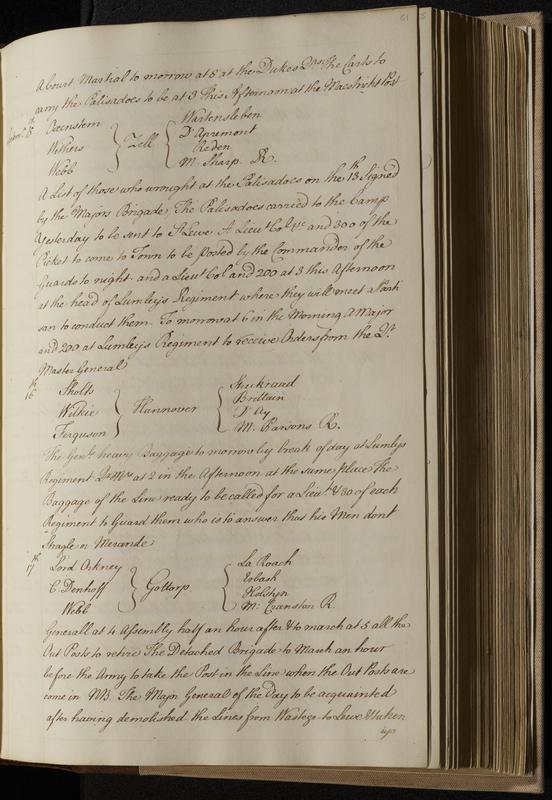 61
A Court Martial to morrow at 8 at the Dukes Qrs. The Carts to
carry the Palisadoes to be at 3 This Afternoon at the Maestright Port
15th Oxenstern Wartensleben
Withers } Zell { D'Apremont
Webb Reden
M. Sharp. R.
A List of those who wrought at the Palisadoes on the 13th Signed
by the Majors Brigade, The Palisadoes carried to the Camp
Yesterday to be sent to A Lewe. A Lieut Col &c and 300 of the
Picket to come to Town to be posted by the Commander of the
Guards to night and a Lieut Col and 200 at 3 this Afternoon
at the head of Lumley's Regiment where they will meet a Parti
san to conduct them. To morrow at 6 in the Morning A Major
and 200 at Lumleys Regiment to receive Orders from the Qr.
Master General
16th Sholts
Wilkie } Hannover { Brittain
Ferguson D'Ay
M. Parsons R.
The Genls heavy Baggage to morrow by break of day at Lumleys
Regiment at 2 in the Afternoon at the same place The
Baggage of the Line ready to be called for a Lieut & 30 of each
Regiment to Guard them who is to answer that his Men dont
Stragle or Merande
17th Lord Orkney La Roach
C. Denhoff } Gottorp { Erbach
Webb Holstyn
M: Cranston R.
Generall at 4 Assembly half an hour after & to march at 5 all the
Out Posts to retire The Detached Brigade to March an hour
before the Army to take the Post in the Line when the Out Posts are
come in NB. The Majr General of the Day to be acquainted
after having demolished the Lines from Wasleze to Lewe & taken
up